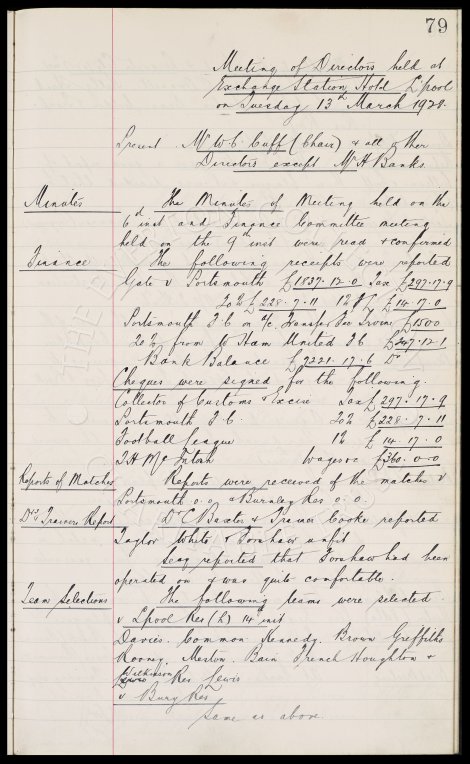 79
Meeting of Directors held at
Exchange Station Hotel L'pool
on Tuesday 13th March 1928.
Present Mr W.C. Cuff (Chair) & all other
Directors except Mr A Banks.
Minutes The Minutes of Meeting held on the
6 inst and Finance Committee meeting
held on the 9th inst were read & confirmed
Finance The following receipts were reported
Gate v Portsmouth £1837.12.0 Tax £297.17.9
20% £228.7.11 1% £14.17.0
Portsmouth F.C. on a/c Transfer Fee Irvine £1500
20% from W Ham United FC £247.12.1
Bank Balance £9221.17.6 Dr
Cheques were signed for the following.
Collector of Customs & Excise Tax £297.17.9
Portsmouth F.C. 20% £228.7.11
Football League 1% £14.17.0
T.H. McIntosh Wages &c £360.0.0
Reports of Matches Reports were received of the matches v
Portsmouth 0.0 & Burnley Res 0.0.
Drs & Trainers Report Dr C Baxter & Trainer Cooke reported
Taylor White & Forshaw unfit
Secy reported that Forshaw had been
operated on & was quite comfortable.
Team Selections The following teams were selected
v L'pool Res (h) 14th inst
Davies. Common Kennedy. Brown Griffiths
Rooney. Meston. Bain French Houghton &
Wilkinson
Res Lewis
v Bury Res
Same as above.